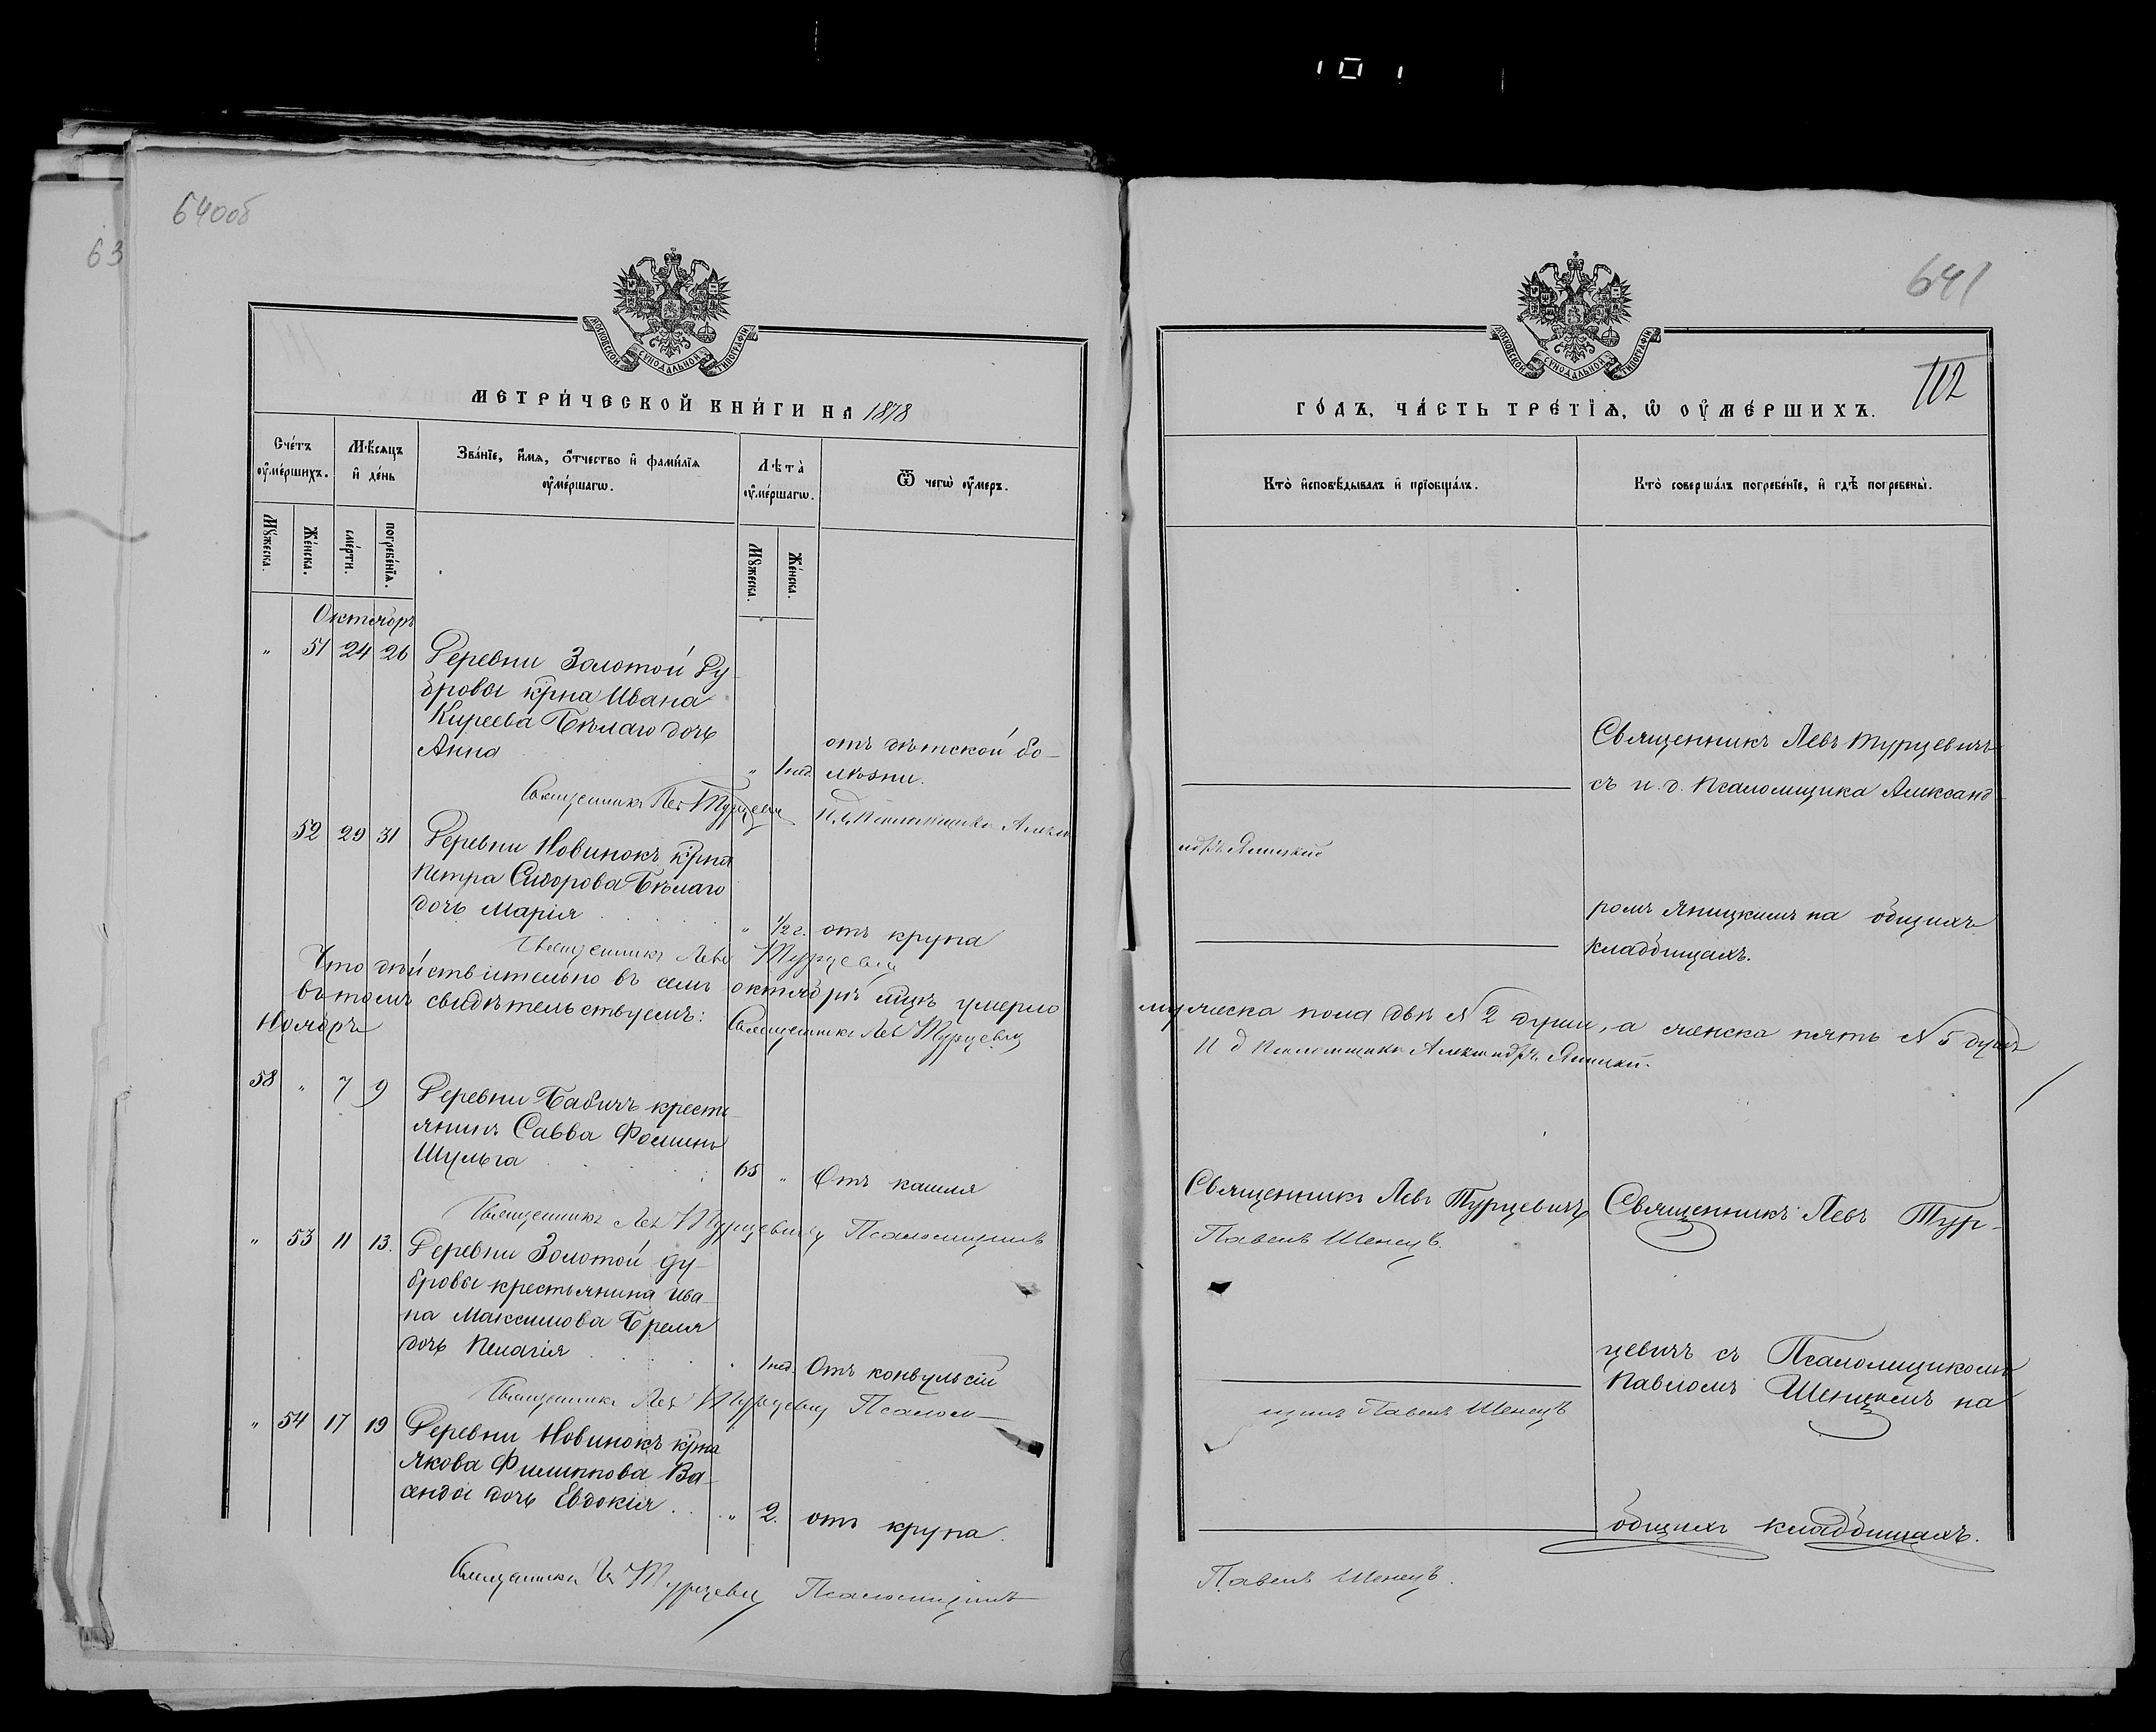 101
640об
63
МОСКОВСКОЙ СѴНОДАЛЬНОЙ ТИПОГРАФІИ
МЕТРИ́ЧЕСКОЙ КНИ́ГИ НА 1878
Сче́тъ ᲂу҆ме́ршихъ.
Мѣ́сѧцъ и҆ де́нь
Зва́нїе, и҆́мѧ, ѻ҆́тчество и҆ фами́лїѧ ᲂу҆ме́ршагѡ.
Лѣта̀ ᲂу҆ме́ршагѡ.
Ѿ чегѡ̀ ᲂу҆́меръ.
Мꙋ́жеска.
Же́нска.
сме́рти.
погребе́нїѧ.
Мꙋ́жеска.
Же́нска.
Октябрь
" 51 24 26 Деревни Золотой Ду-
бровы кр̃на Ивана
Киреева Бѣлаго дочь
Анна
" 1 нед. отъ дѣтской бо-
лѣзни.
Священникъ Левъ Турцевич И. д. Псаломщика Алекса
52 29 31 Деревни Новинокъ кр̃на
Петра Сидорова Бѣлаго
дочь Марія
" 1/2 г. отъ крупа
Священникъ Левъ Турцевич
Что дѣйствительно въ семъ октябрѣ м̃цѣ умерло
въ томъ свидѣтельствуемъ: Священникъ Левъ Турцевич
Ноябрь
58 " 7 9 Деревни Бабичъ кресть-
янинъ Савва Фоминъ
Шульга
65 " Отъ кашля
Священникъ Левъ Турцевичъ Псаломщикъ
" 53 11 13. Деревни Золотой Ду-
бровы крестьянина Ива-
на Максимова Бреля
дочь Пелагія
1 нед. Отъ конвульсій
Священникъ Левъ Турцевич Псалом-
" 54 17 19 Деревни Новинокъ кр̃на
Якова Филиппова Ва-
сенды дочь Евдокія
" 2. отъ крупа.
Священникъ Левъ Турцевич Псаломщикъ
641
112
МОСКОВСКОЙ СѴНОДАЛЬНОЙ ТИПОГРАФІИ
ГО́ДЪ, ЧА́СТЬ ТРЕ́ТЇѦ, Ѡ҆ ОУ҆МЕ́РШИХЪ.
Кто̀ и҆сповѣ́дывалъ и҆ прїобща́лъ.
Кто̀ соверша́лъ погребе́нїе, и҆ гдѣ̀ погребены̀.
Священникъ Левъ Турцевичъ
съ и. д. Псаломщика Александ-
ндръ Яницкій
ромъ Яницкимъ на общихъ
кладбищахъ.
мужеска пола двѣ № 2 души, а женска пять № 5 душъ
И д Псаломщика Александръ Яницкій.
Священникъ Левъ Турцевичъ
Павелъ Шенецъ.
Священникъ Левъ Тур-
цевичъ съ Псаломщикомъ
Павломъ Шенцемъ на
щикъ Павелъ Шенецъ
общихъ кладбищахъ.
Павелъ Шенецъ.